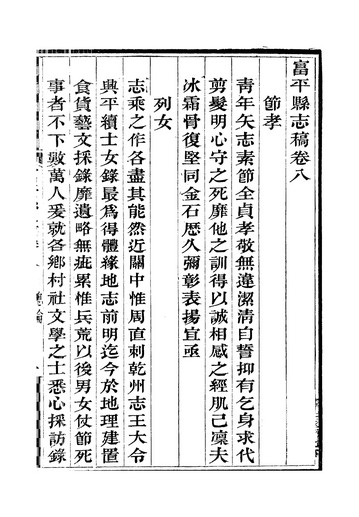 富平縣志稿卷八
節孝
靑年矢志素節全貞孝敬無違潔淸自誓抑有乞身求代
剪髮明心守之死靡他之訓得以誠相感之經肌已凜夫
冰霜骨復堅同金石歷久彌彰表揚宜亟
列女
志乘之作各盡其能然近關中惟周直刺乾州志王大令
興平續士女錄最爲得體緣地志前明迄今於地理建置
食貨藝文採錄靡遺略無疵累惟兵荒以後男女仗節死
事者不下數萬人爰就各鄕村社文學之士悉心採訪錄